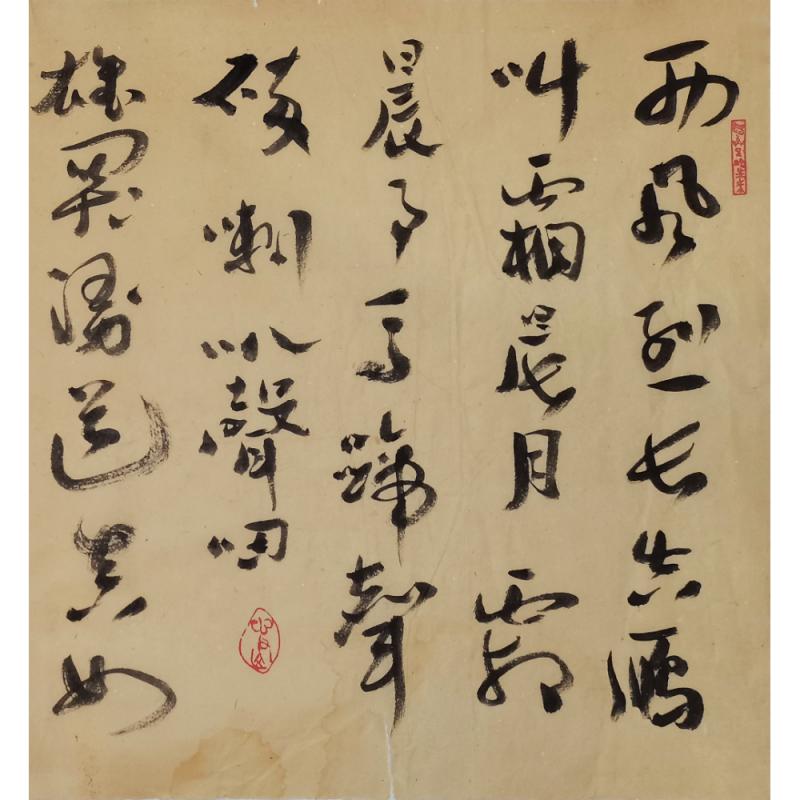 西風烈長空雁
叫霜晨月霜
晨月馬蹄聲
碎喇叭聲咽
雄關漫道真如